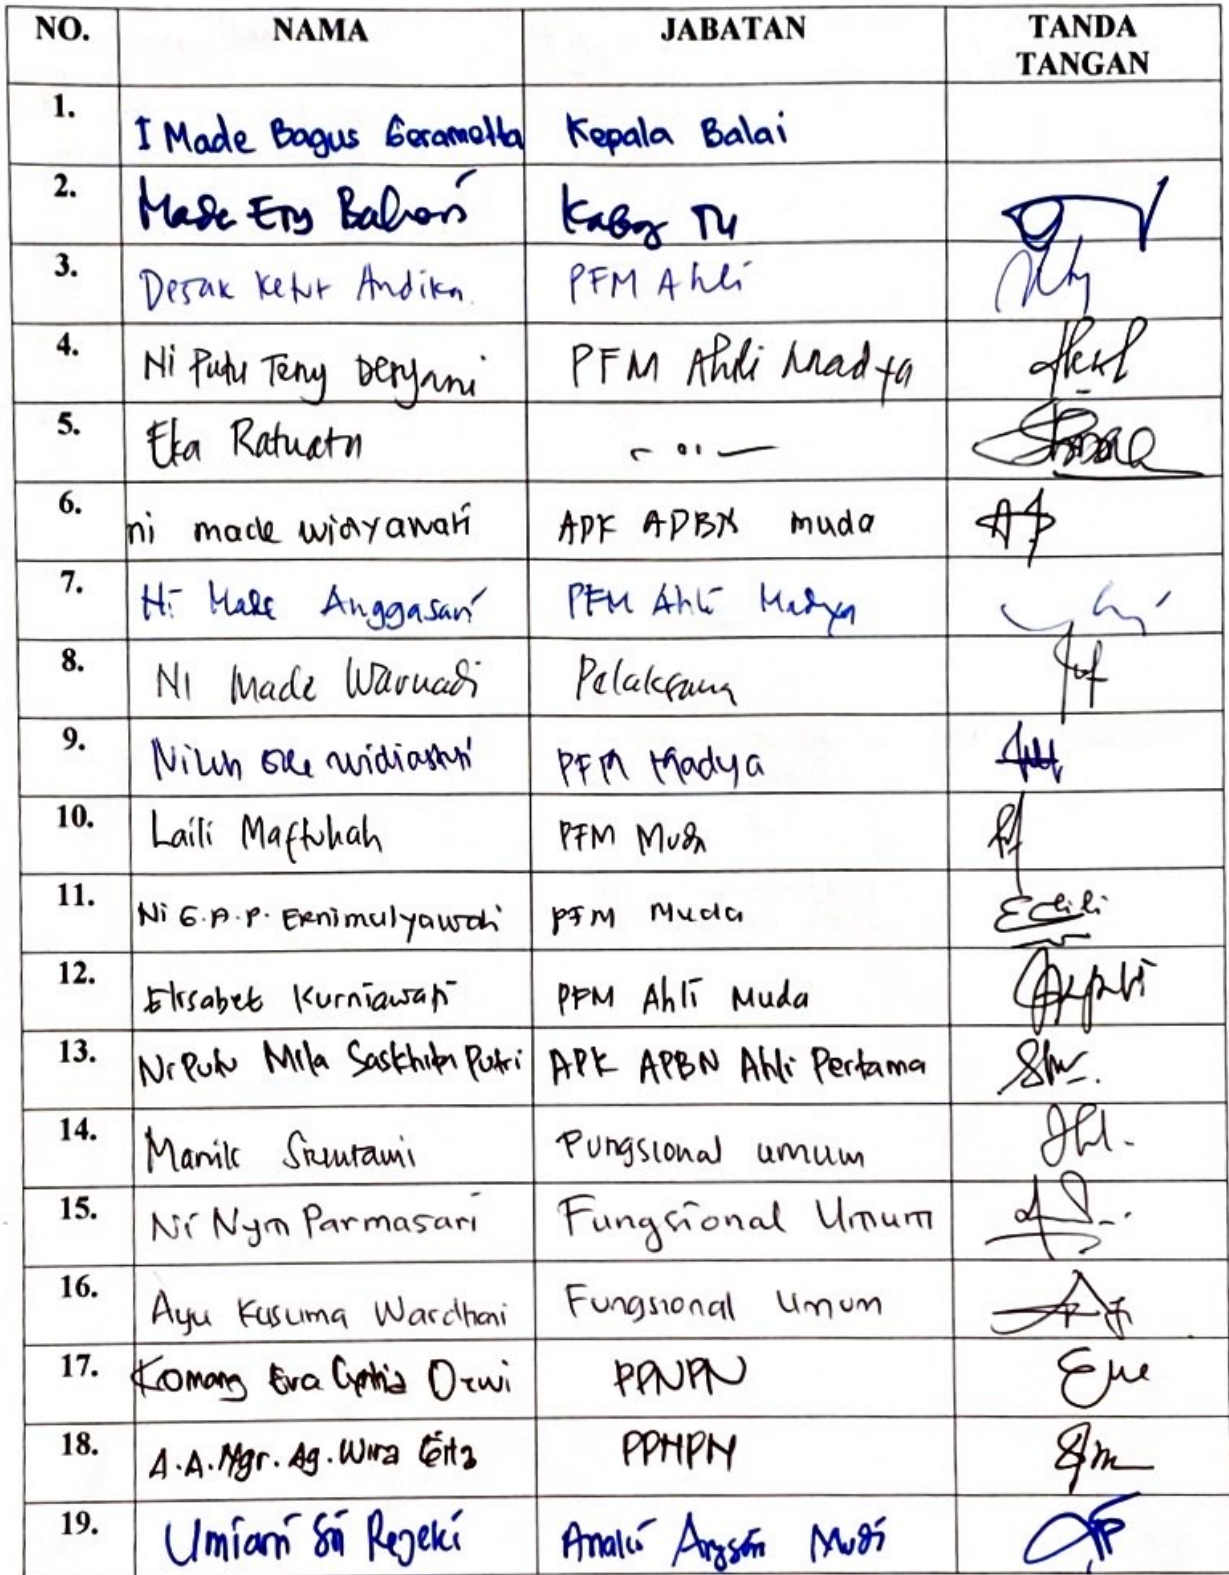 NO. NAMA JABATAN TANDA TANGAN
1. I Made Bagus Gerametta Kepala Balai
2. Made Ery Bahari Kabag TU
3. Desak Ketut Andika PFM Ahli
4. Ni Putu Teny Deryani PFM Ahli Madya
5. Eka Ratnata
6. ni made widyawati APK APBN muda
7. Ni Made Anggasari PFM Ahli Madya
8. Ni Made Warnadi Pelaksana
9. Niluh widiastuti PFM Madya
10. Laili Maftuhah PFM Muda
11. Ni G.A.P. Ernimulyawati PFM Muda
12. Elisabet Kurniawati PFM Ahli Muda
13. Ni Putu Mila Saskhita Putri APK APBN Ahli Pertama
14. Manik Fungsional umum
15. Ni Nym Parmasari Fungsional Umum
16. Ayu Kusuma Wardhani Fungsional Umum
17. Komang Eva Cynthia Dewi PPNPN
18. A.A.Ngr.Ag.Wira PPNPN
19. Umiarti Sri Rejeki